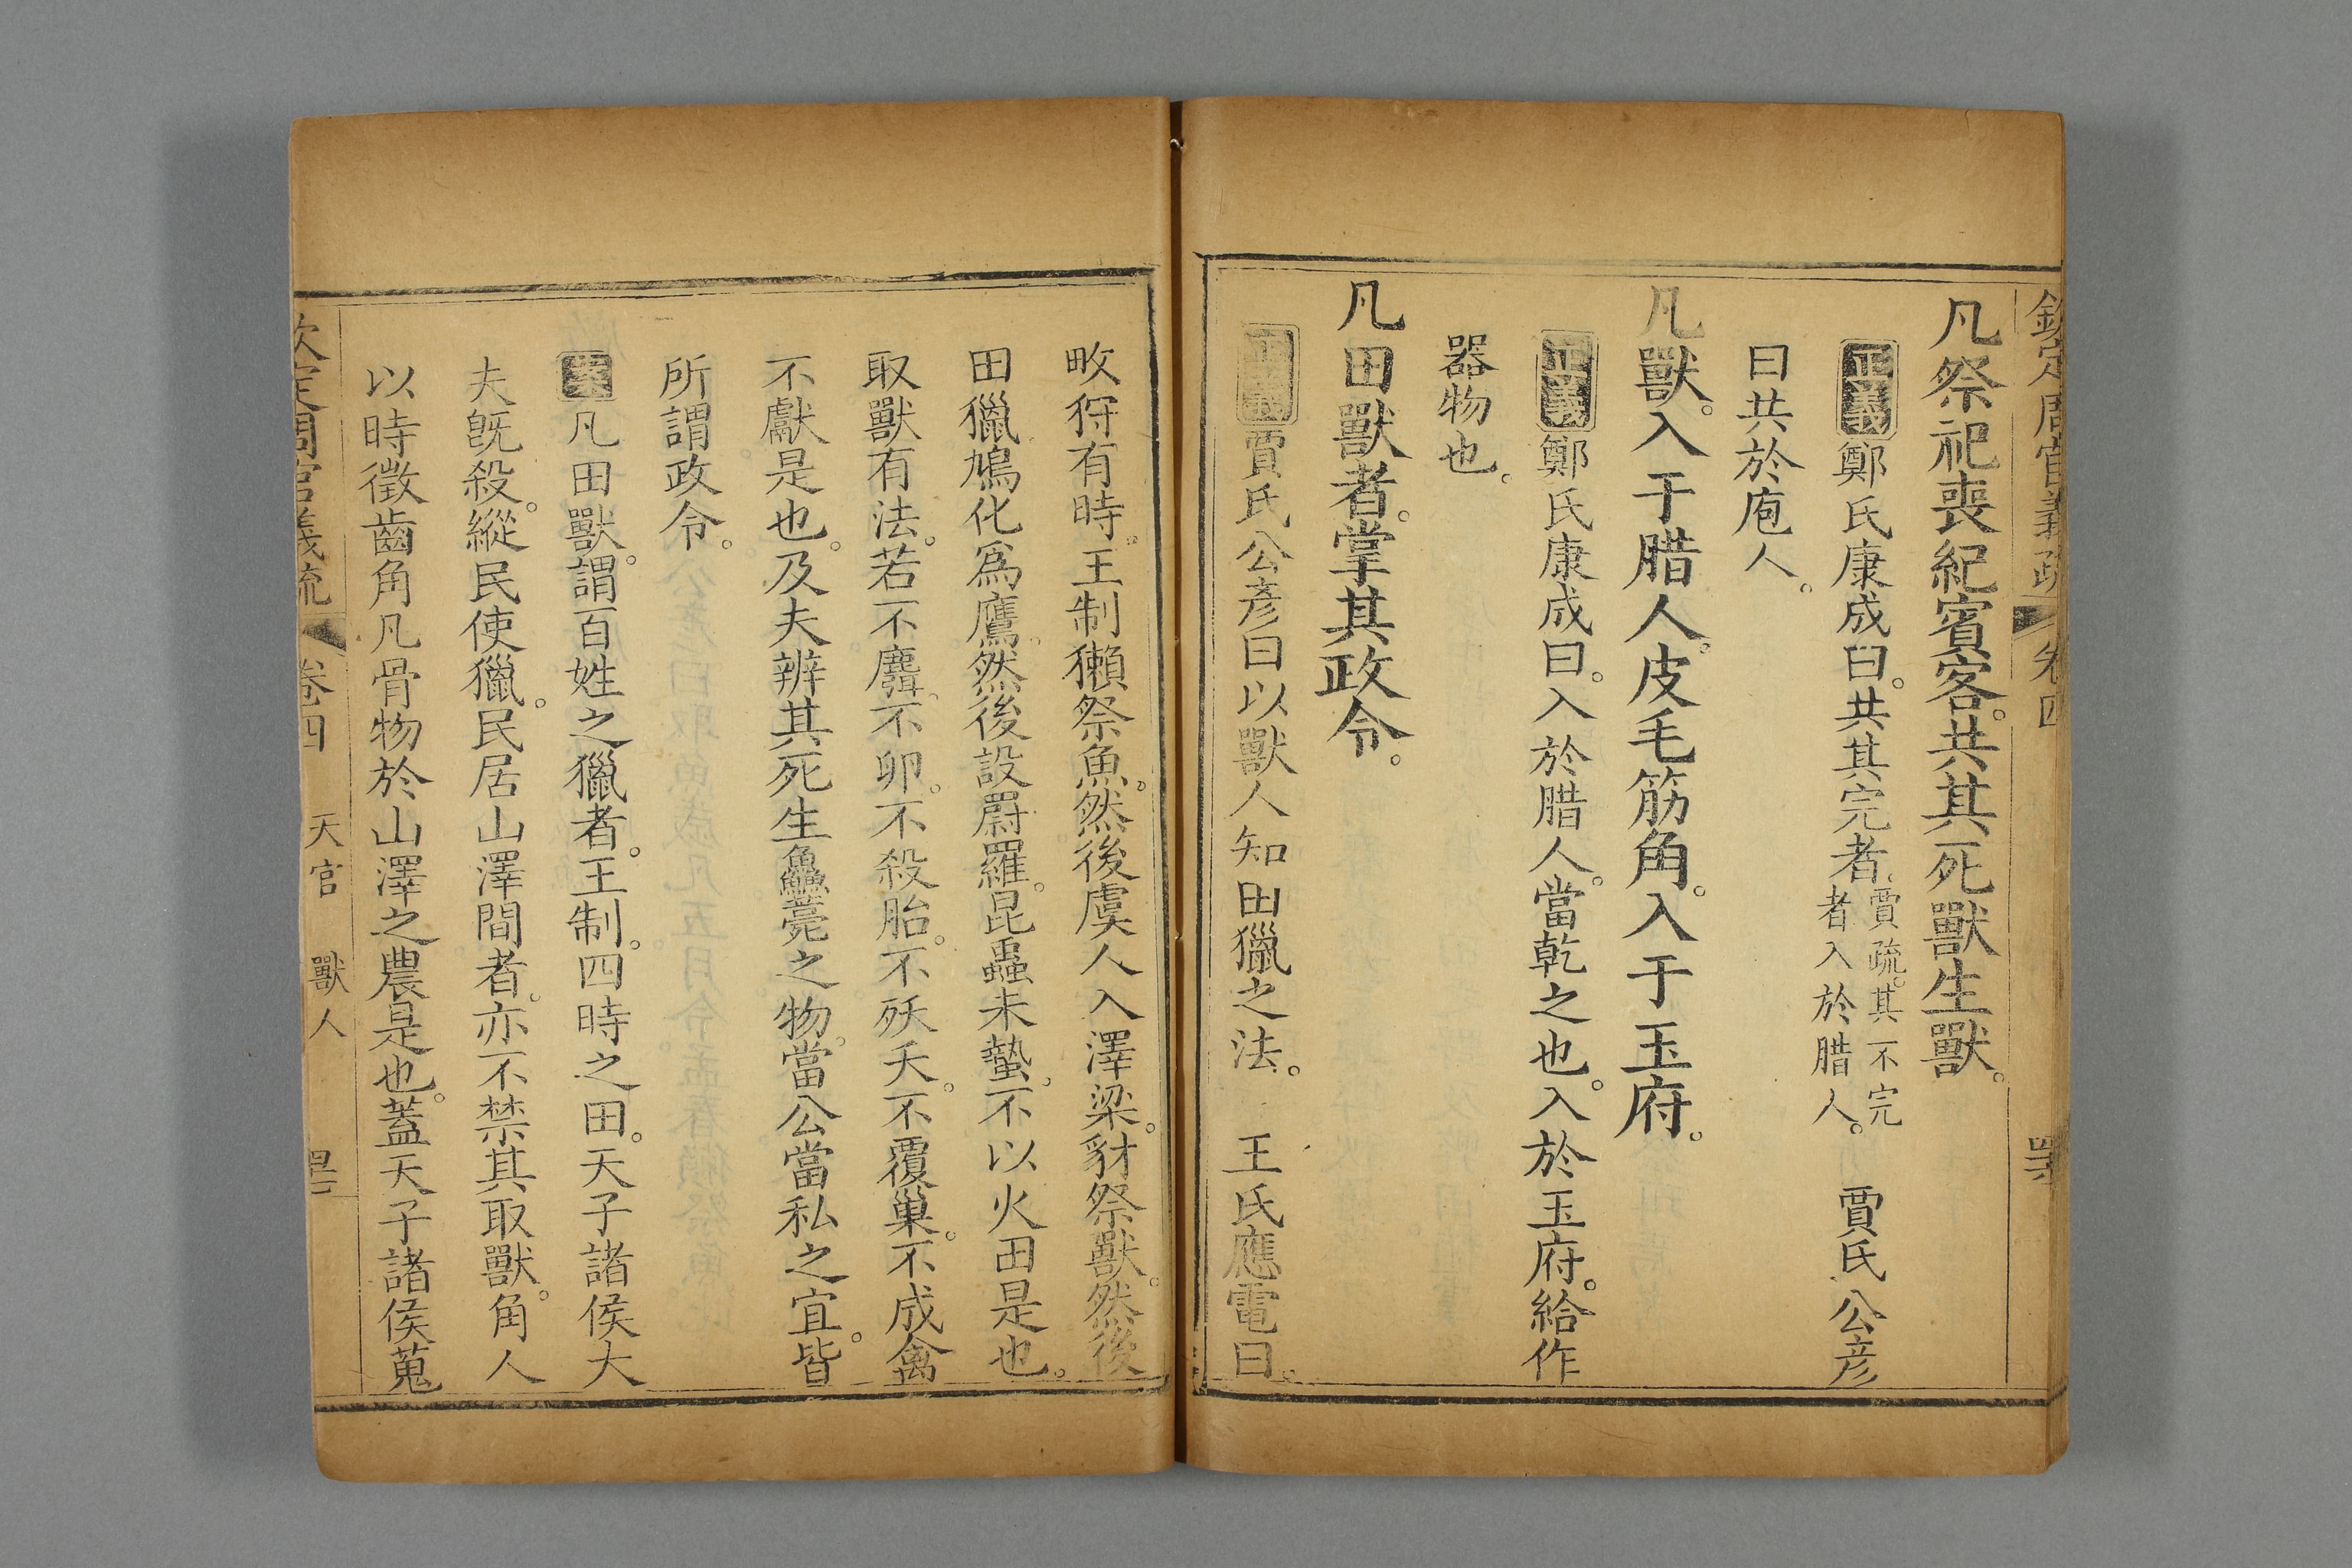 欽定周官義疏 卷四
凡祭祀喪紀賓客。共其死獸生獸。
正義鄭氏康成曰。共其完者。賈疏。其不完者入於腊人。 賈氏公彥
曰共於庖人。
凡獸。入于腊人。皮毛筋角。入于玉府。
正義鄭氏康成曰。入於腊人。當乾之也。入於玉府。給作
器物也。
凡田獸者。掌其政令。
正義賈氏公彥曰以獸人知田獵之法。 王氏應電曰。
畋狩有時。王制獺祭魚。然後虞人入澤梁。豺祭獸。然後
田獵鳩化爲鷹。然後設罻羅。昆蟲未蟄。不以火田是也。
取獸有法。若不麛。不卵。不殺胎。不殀夭。不覆巢。不成禽
不獻是也。及夫辨其死生鱻薧之物。當公當私之宜。皆
所謂政令。
案凡田獸。謂百姓之獵者。王制。四時之田。天子諸侯大
夫旣殺。縱民使獵。民居山澤間者。亦不禁其取獸。角人
以時徵齒角凡骨物於山澤之農是也。蓋天子諸侯蒐
欽定周官義疏 卷四 天官 獸人